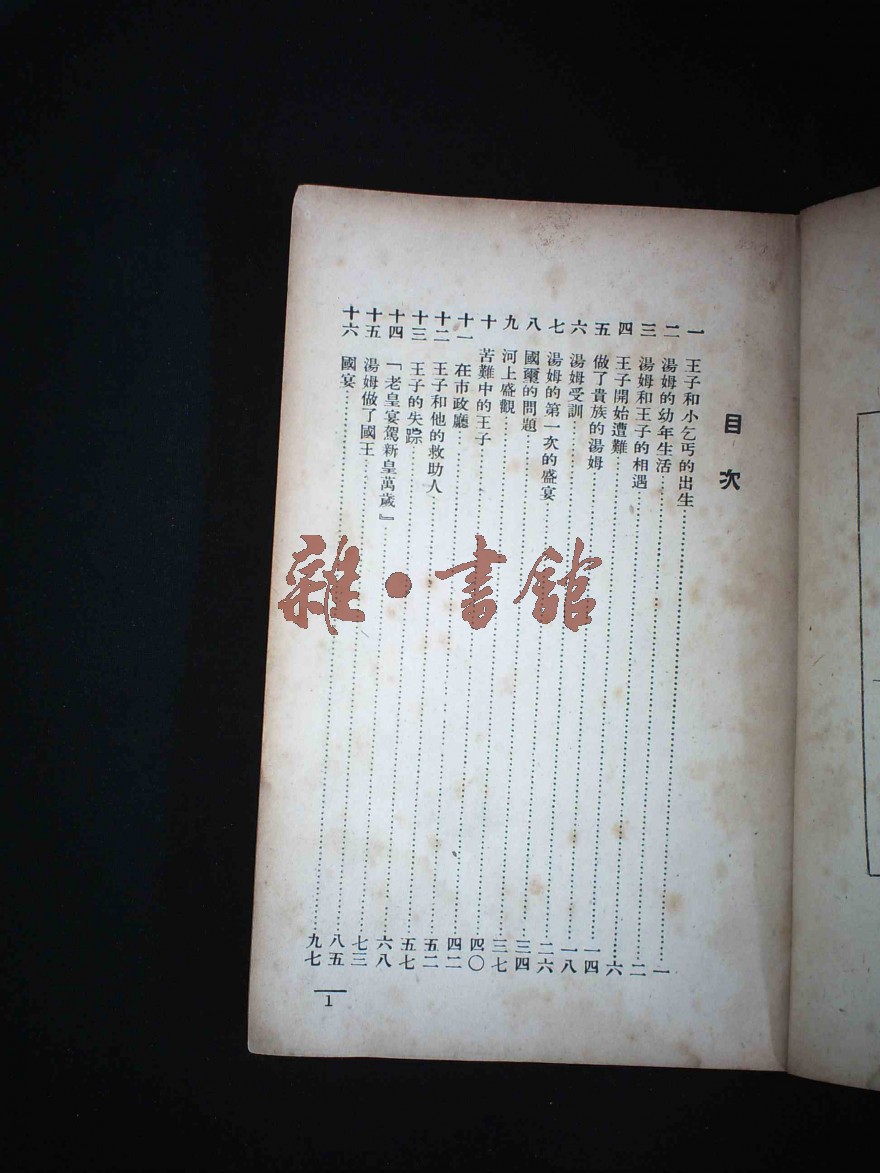 目次
一 王子和小乞丐的出生……一
二 湯姆的幼年生活……二
三 湯姆和王子的相遇……六
四 王子開始遭難……一四
五 做了貴族的湯姆……一八
六 湯姆受訓……二六
七 湯姆的第一次的盛宴……三四
八 國璽的問題……三七
九 河上盛觀……四〇
十 苦難中的王子……四二
十一 在市政廳……五二
十二 王子和他的救助人……五七
十三 王子的失踪……六八
十四 「老皇宴駕新皇萬歲』……七三
十五 湯姆做了國王……八五
十六 國宴……九七
1
雜·書館